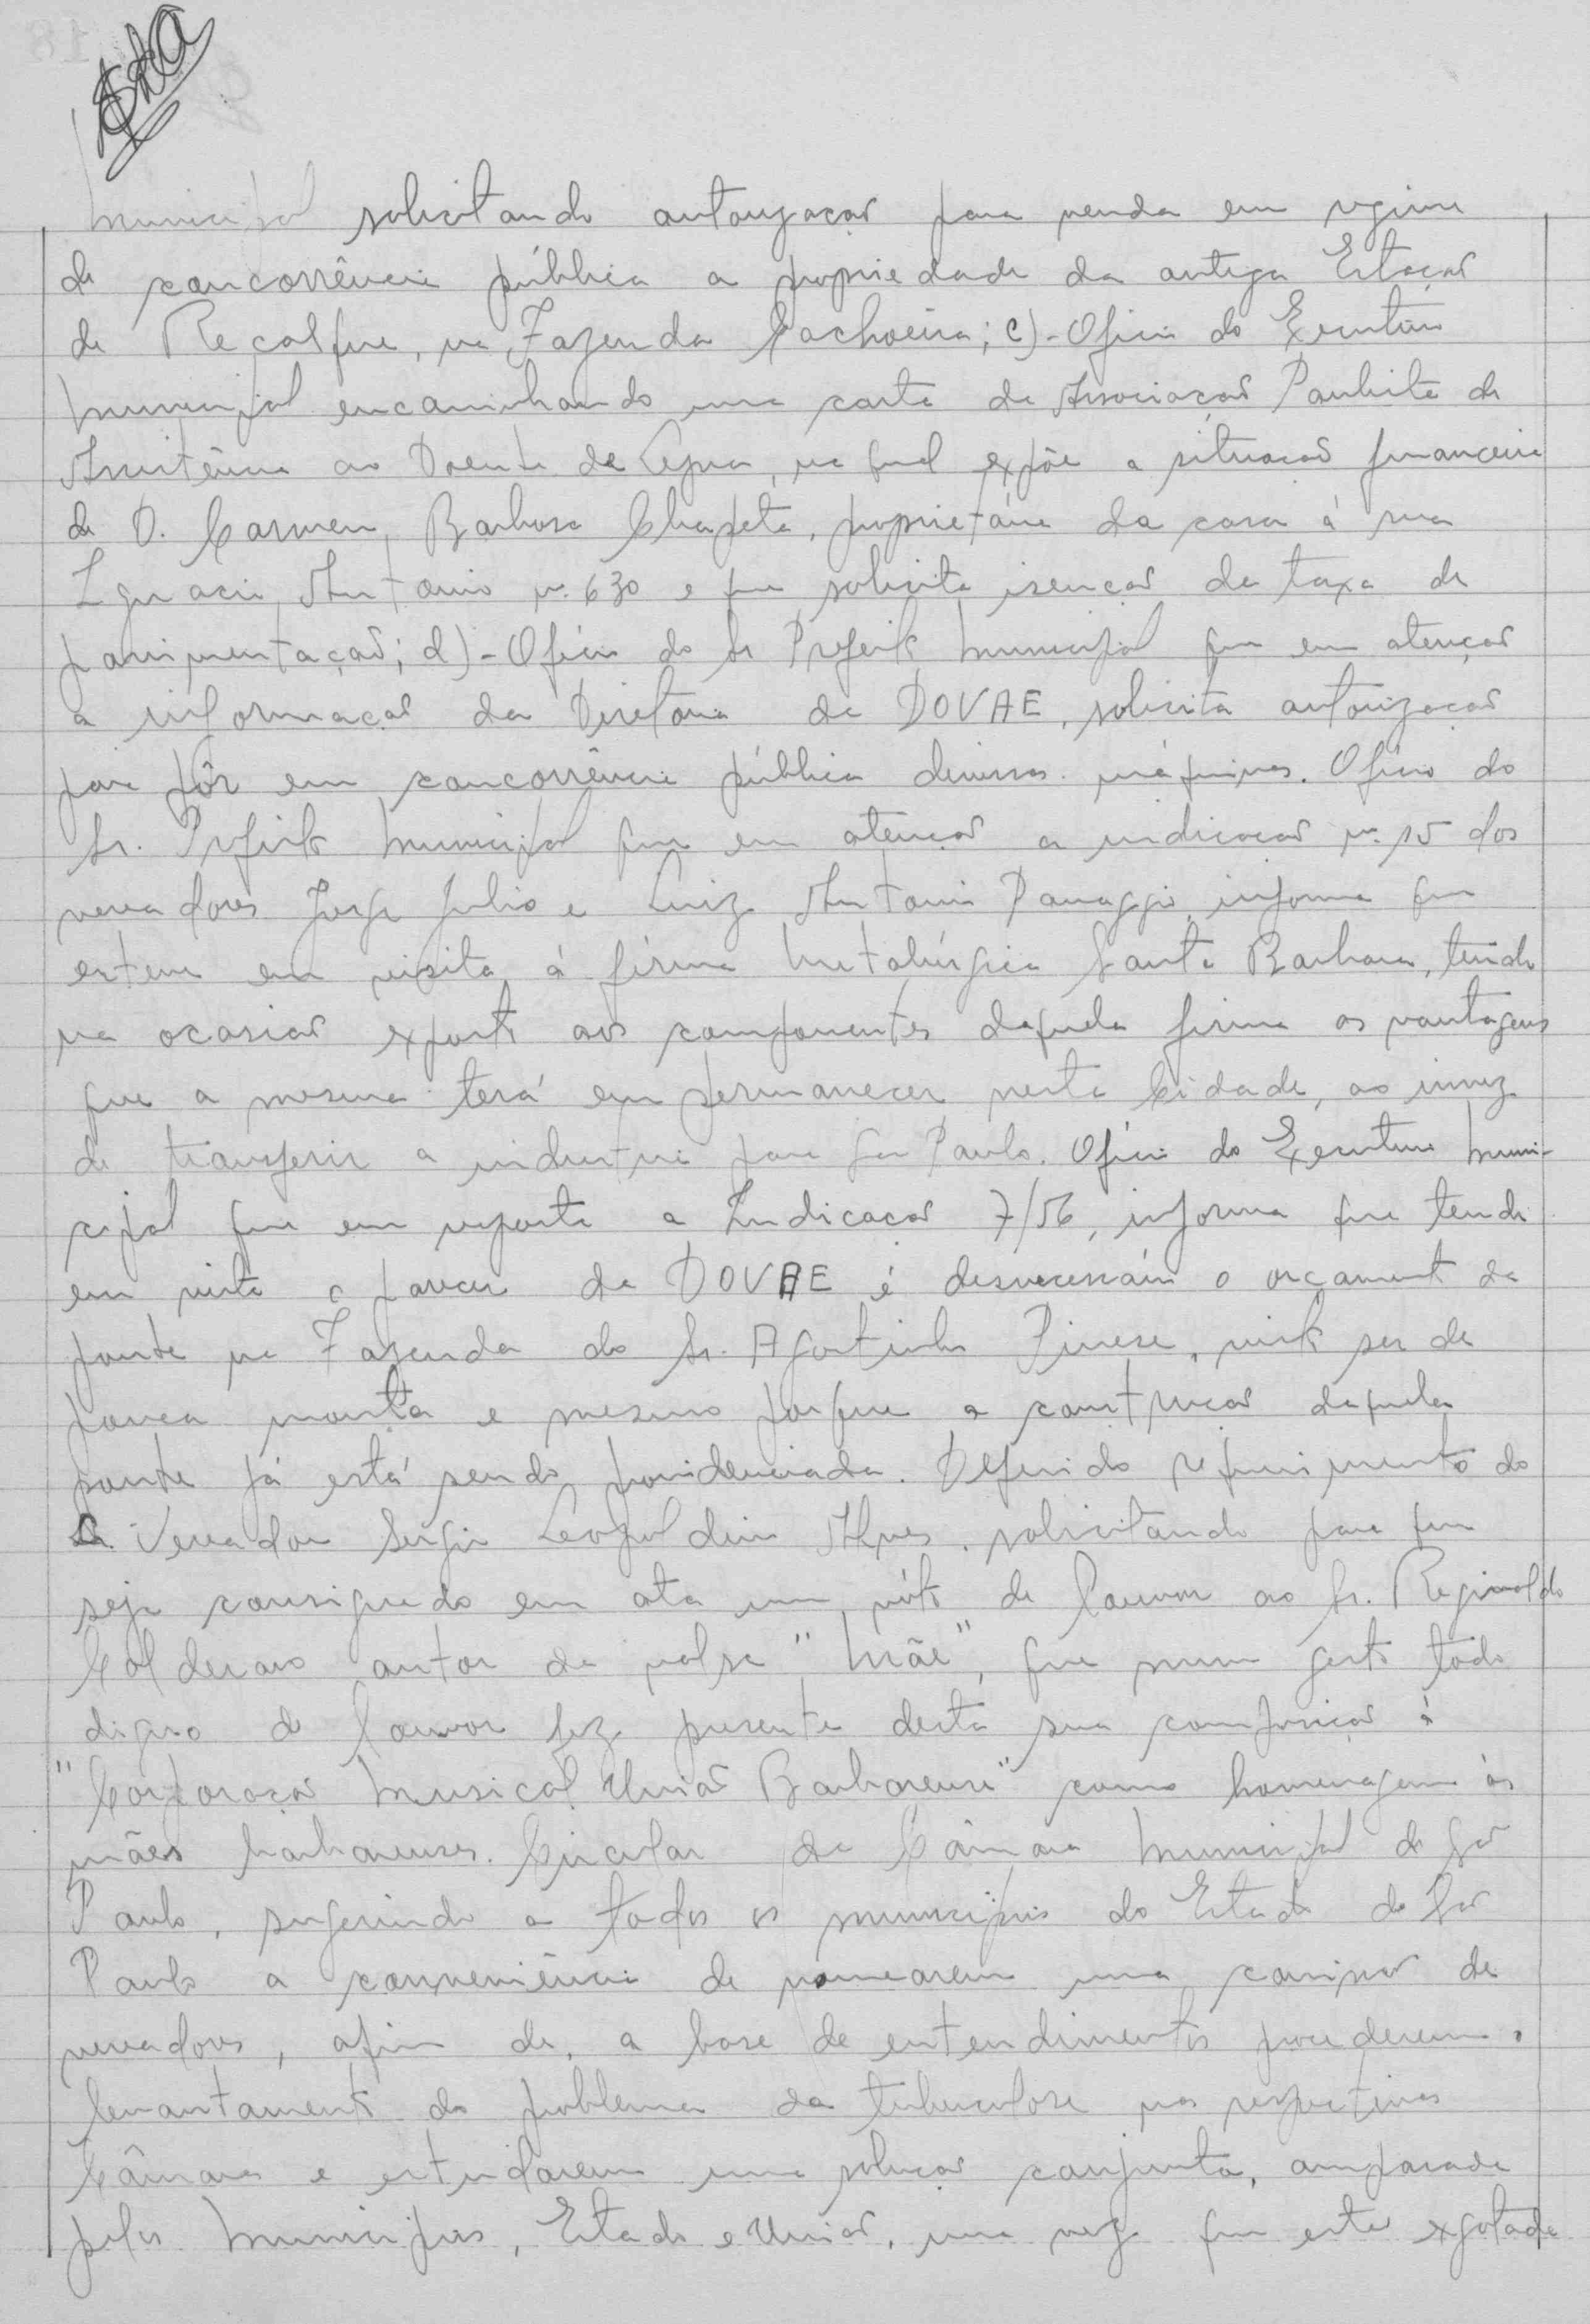 Municipal solicitando autorização para venda em regime
de concorrência pública a propriedade da antiga Estação
de Recalque, na Fazenda Cachoeira; c)- Ofício do Executivo
Municipal encaminhando uma carta da Associação Paulista de
Assistência ao Doente de Lepra, na qual expõe a situação financeira
de D. Carmen Barbosa Chapeta, proprietária da casa á rua
Ignacio Antonio n. 630 e que solicita isenção da taxa de
pavimentação; d)- Ofício do Sr. Prefeito Municipal que em atenção
a informação da Diretoria da DOVAE, solicita autorização
para pôr em concorrência pública diversas máquinas. Ofício do
Sr. Prefeito Municipal que em atenção a indicação n. 15 dos
vereadores Jorge Julio e Luiz Antonio Panaggio, informa que
esteve em visita á firma Metalúrgica Santa Barbara, tendo
na ocasião exposto aos componentes daquela firma as vantagens
que a mesma terá em permanecer nesta Cidade, ao invez
de transferir a industria para São Paulo. Ofício do Executivo Muni-
cipal que em resposta a Indicação 7/56, informa que tendo
em vista o parecer da DOVAE é desnecessário o orçamento da
ponte na Fazenda do Sr. Agostinho Pinese, visto ser de
pouca monta e mesmo porque a construção daquela
ponte já está sendo providenciada. Deferido requerimento do
Sr. Vereador Sergio Leopoldino Alves, solicitando para que
seja consignado em ata um vóto de louvor ao Sr. Reginaldo
Calderaro autor da valsa "Mãe", que num gesto todo
digno de louvor fez presente desta sua composição á
"Corporação Musical União Barbarense" como homenagem ás
mães barbarenses. Circular da Câmara Municipal de São
Paulo, sugerindo a todos os municípios do Estado de São
Paulo a conveniência de nomearem uma comissão de
vereadores, afim de, a base de entendimentos procederem o
levantamento do problema da tuberculose nas respectivas
Câmaras e estudarem uma solução conjunta, amparada
pelos Municípios, Estado e União, uma vez que está exgotada